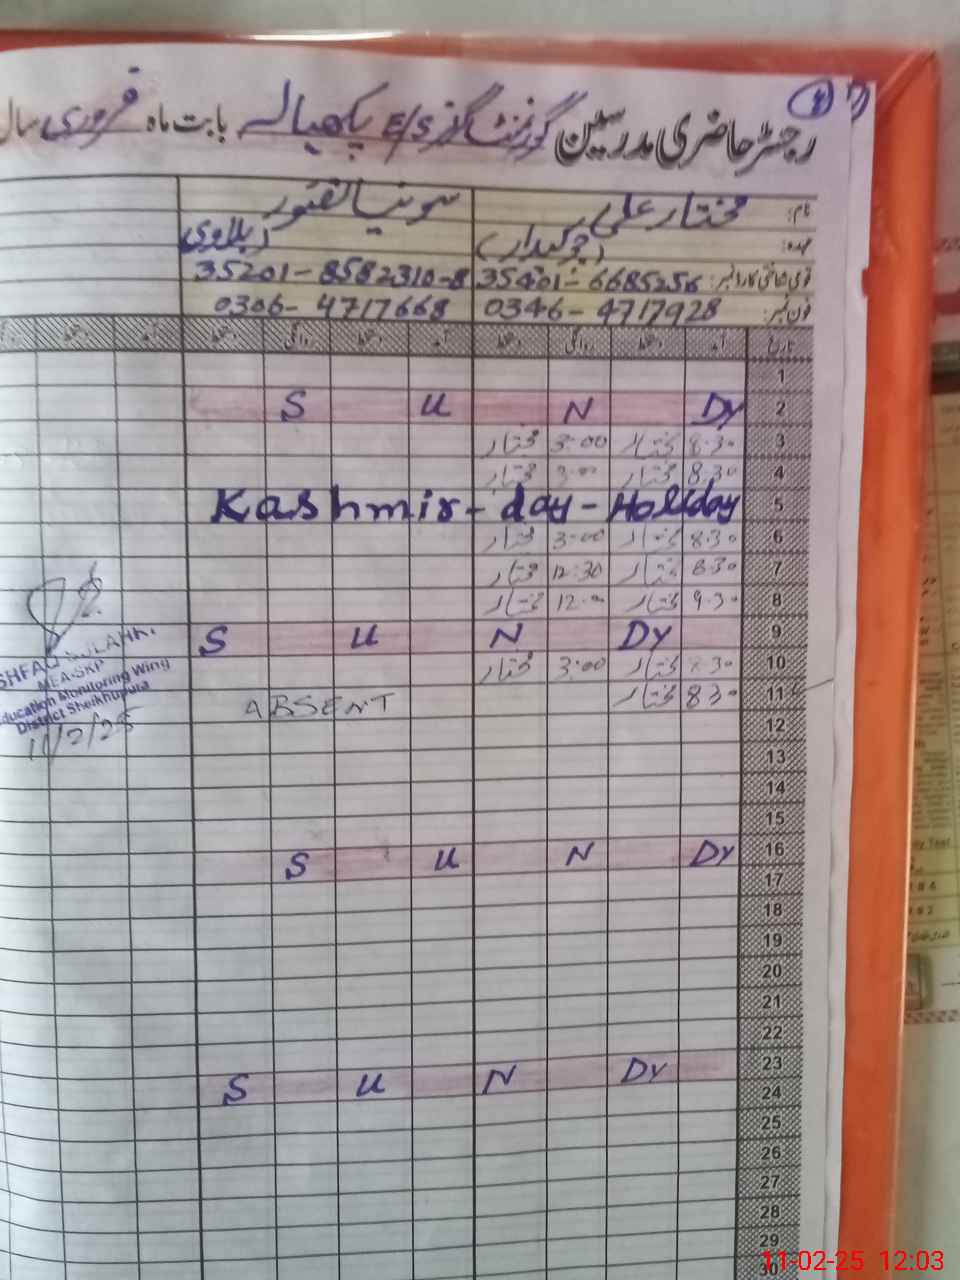 رجسٹر حاضری مدرسین گورنمنٹ گرلز E/S پکھیالہ بابت ماہ فروری سال
نام: مختار علی سونیا
عہدہ: (چوکیدار)
قومی شناختی کارڈ نمبر: 35401-6685256 35201-8582310-8
فون نمبر: 0346-4717928 0306-4717668
تاریخ آمد دستخط روانگی دستخط آمد دستخط روانگی دستخط
1
2 S U N Dy
3 8.30 مختار 3:00 مختار
4 8.30 مختار 3:00 مختار
5 Kashmir-day-Holiday
6 8.30 مختار 3:00 مختار
7 8.30 مختار 12:30 مختار
8 9.30 مختار 12:00 مختار
9 S U N Dy
10 8.30 مختار 3:00 مختار
11 8.30 مختار ABSENT
SULAHR.
MEA-SKP
Education Monitoring Wing
District Sheikhupura
11/2/25
12
13
14
15
16 S U N Dy
17
18
19
20
21
22
23 S U N Dy
24
25
26
27
28
29
30
11-02-25 12:03